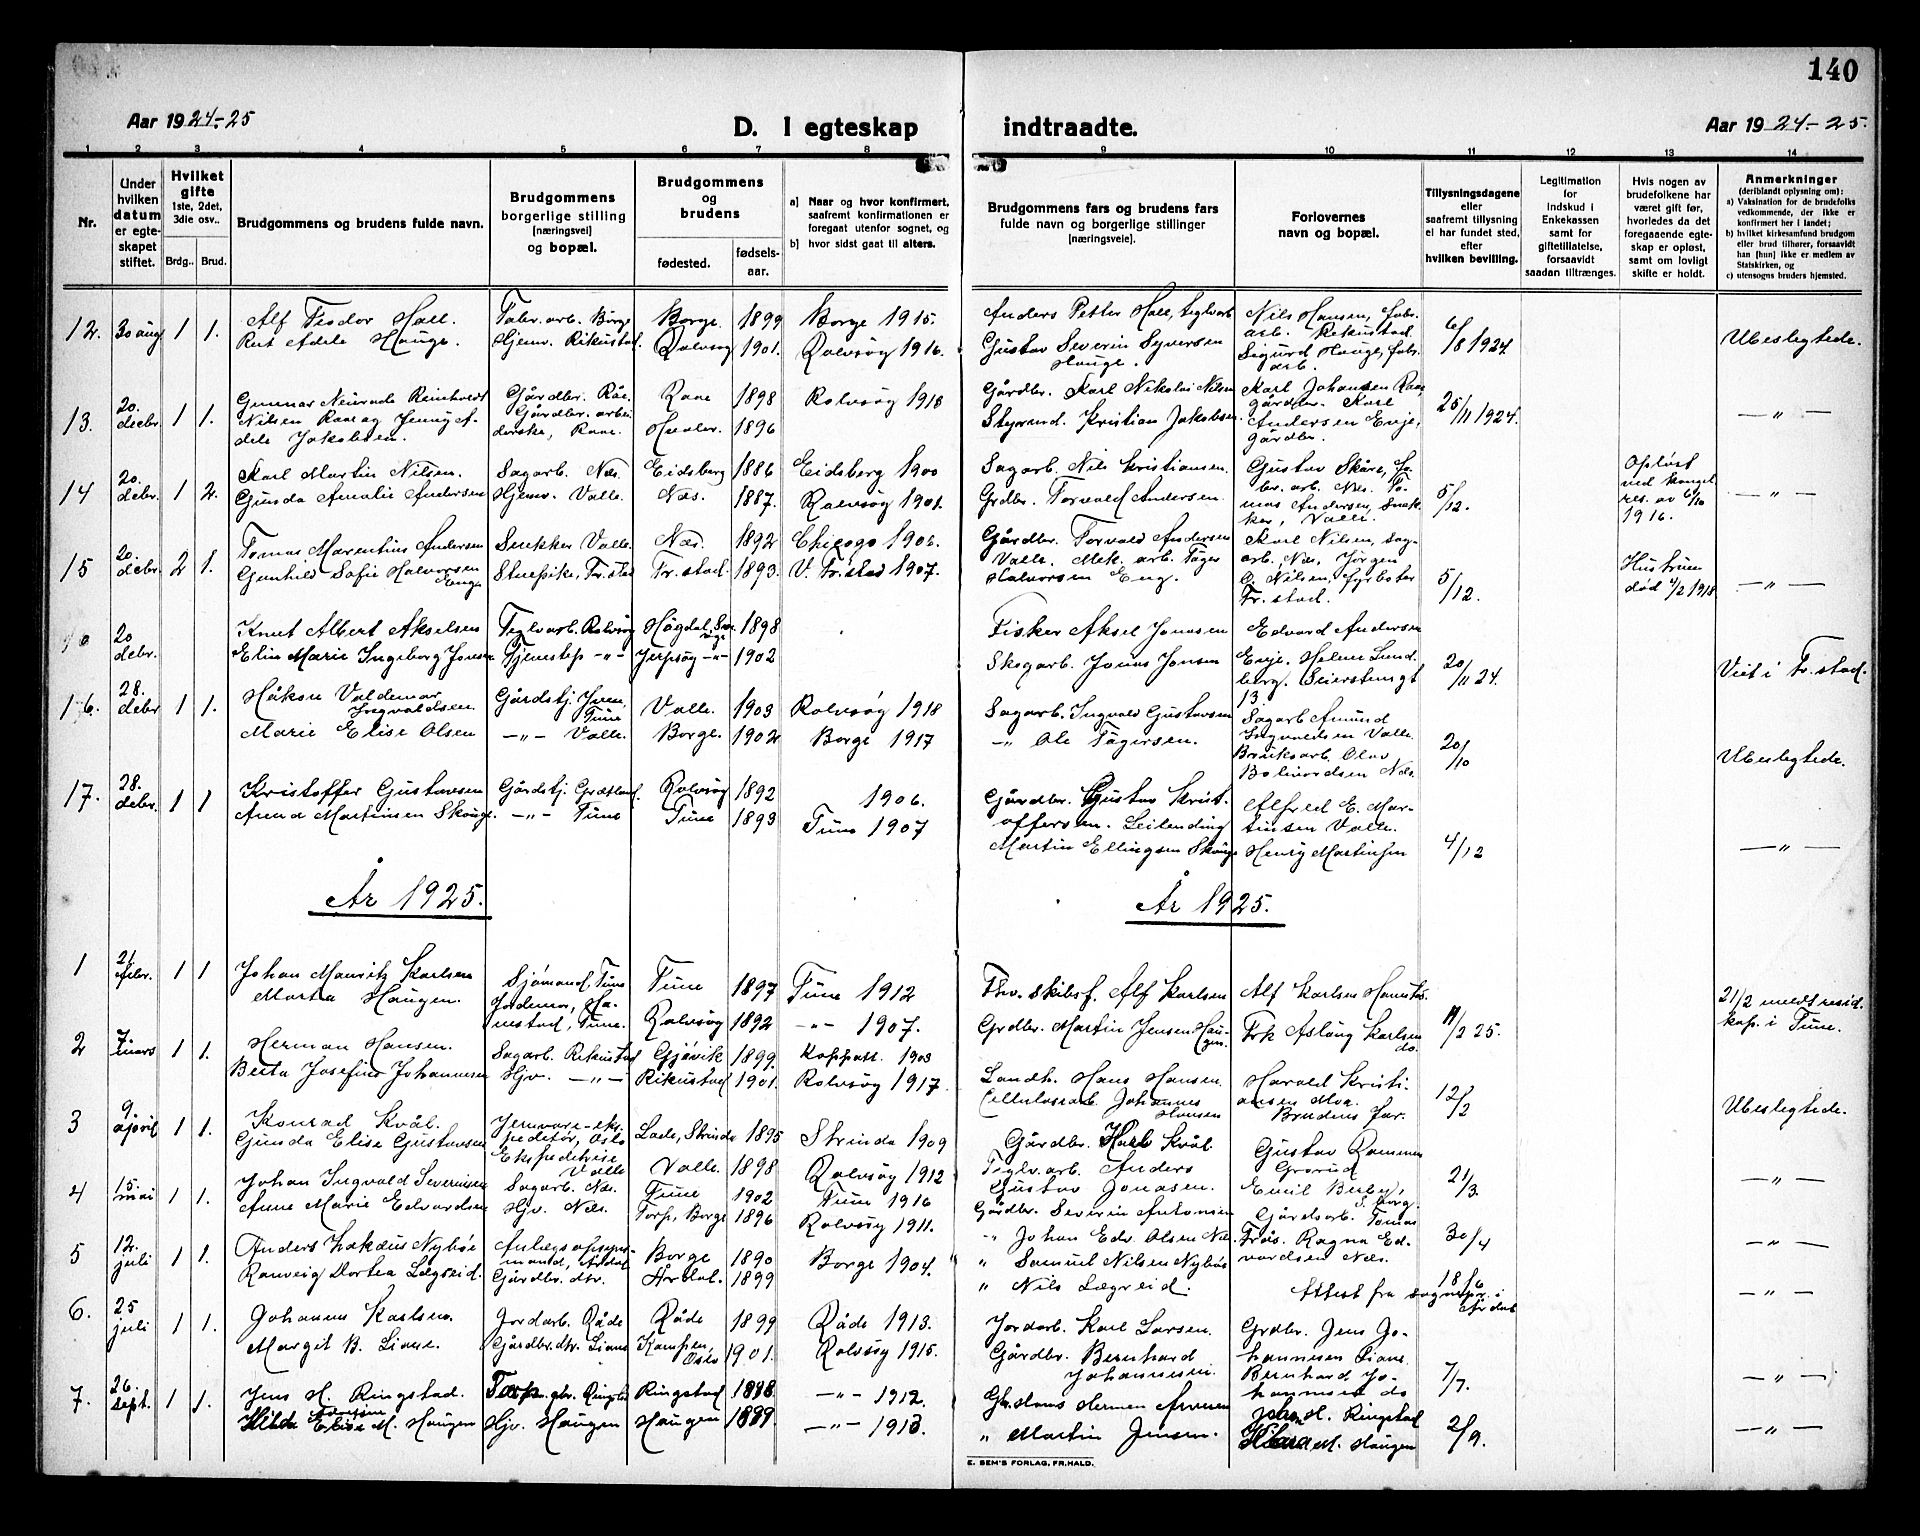 140
Aar 1924-25
D. I egteskap
indtraadte.
Aar 1924-25.
1 2 3 4 5 6 7 8 9 10 11 12 13 14
Nr.
Under hvilken datum er egteskapet stiftet.
Hvilket gifte 1ste, 2det, 3die osv..
Brdg.. Brud.
Brudgommens og brudens fulde navn.
Brudgommens borgerlige stilling [næringsvei] og bopæl.
Brudgommens og brudens
fødested.
fødselsaar.
a) Naar og hvor konfirmert, saafremt konfirmationen er foregaat utenfor sognet, og
b) hvor sidst gaat til alters.
Brudgommens fars og brudens fars fulde navn og borgerlige stillinger [næringsveie].
Forlovernes navn og bopæl.
Tillysningsdagene eller saafremt tillysning ei har fundet sted, efter hvilken bevilling.
Legitimation for indskud i Enkekassen samt for giftetillatelse, forsaavidt saadan tiltrænges.
Hvis nogen av brudefolkene har været gift før, hvorledes da det foregaaende egteskap er opløst, samt om lovlig skifte er holdt.
Anmerkninger (deriblandt oplysning om):
a) Vaksination for de brudefolks vedkommende, der ikke er konfirmert her i landet;
b) hvilket kirkesamfund brudgom eller brud tilhører, forsaavidt han [hun] ikke er medlem av Statskirken, og
c) utensogns bruders hjemsted.
12. 30 aug 1 1. Alf Teodor Hall. Fabr. arb. Borge Borge. 1899 Borge 1915. Anders Petter Hall, teglvarb Nils Hansen, fabr. arb. Rikustad. 6/8 1924. Ubeslegtede.
Rut Adele Hauge. Hjemv. Rikustad. Rolvsøy 1901. Rolvsøy 1916. Gustav Severin Syversen Hauge. Sigurd Hauge, fabr. arb.
13. 20. decbr. 1 1. Gunnar Neurade Reinholdt Gårdbr. Råe. Raae 1898 Rolvsøy 1918 Gårdbr. Karl Nikolai Nilsen Karl Johansen Raae, gårdbr. Karl 25/11 1924. — " —
Nilsen Raae og Jenny Adele Jakobsen. Gårdbr. arbeiderske, Raae. Hvaler. 1896 Styrmd. Kristian Jakobsen. Andersen Evje, gårdbr.
14 20. debr. 1 2. Karl Martin Nilsen. Sagarb. Næs. Eidsberg 1886 Eidsberg 1900 Sagarb. Nils Kristiansen. Gustav Skåre, fabr. arb. Næs. Tomas Andersen, Snekker, Valle. 5/12. Opløst ved kongel. res. av 6/10 1916. — " —
Gunda Amalie Andersen Hjemv. Valle. Næs. 1887. Rolvsøy 1901. Grdbr. Torvald Andersen.
15 20. debr. 2 1. Tomas Marentius Andersen Snekker Valle. Næs. 1892 Chicago 1906. Gårdbr. Torvald Andersen Valle. Karl Nilsen, sagarb., Næs. Jørgen O. Nilsen, fyrbøter Fr.stad. 5/12. Hustruen død 4/2 1918 — " —
Gunhild Sofie Halvorsen Eng. Strepike, Fr.stad Fr.stad. 1893. V. Fr.stad 1907. Mek. arb. Tager Halvorsen Eng.
20 debr. Knut Albert Akselsen Teglv arb. Rolvsøy Högdal, Sverige 1898 Fisker Aksel Jonasen Edvard Andersen Evje. 20/11 24. Viet i Fr.stad.
Elin Marie Ingeborg Jonsen Tjenestep — " — Jerpsøy — " — 1902 Skogarb. Jonas Jonsen Helene Lundberg. Seierstensgt 13.
16. 28. debr 1 1. Håkon Valdemar Ingvaldsen. Gårdstj. Tune Valle. 1903 Rolvsøy 1918 Sagarb. Ingvald Gustavsen Sagarb Amund Ingvaldsen Valle. 20/10 Ubeslegtede.
Marie Elise Olsen — " — Valle. Borge. 1902 Borge 1917 — " Ole Tågersen. Bruksarb. Olav Bolivardsen Næs.
17. 28. debr. 1 1 Kristoffer Gustavsen Gårdstj. Grætland. Rolvsøy 1892 1906. Gårdbr. Gustav Kristoffersen. Alfred E. Martinsen Valle. 4/12 — " —
Amud Martinsen Skouge. — " — Tune Tune 1893 Tune 1907 Leilending Martin Ellingsen Skouge Henry Martinsen
År 1925. År 1925.
1 21. febr. 1 1 Johan Mauritz Karlsen Sjømand, Tune Tune 1897 Tune 1912 Fhv. skibsf. Alf Karlsen Alf Karlsen 11/2 25. 21/2 meds resid. kap. i Tune.
Marta Haugen. Jordmor, Hanestad, Tune. Rolvsøy 1892 — " — 1907. Grdbr. Martin Jensen Haugen. Frk Aslaug Karlsen do.
2 7 mars 1 1. Herman Hansen. Sagarb. Rikustad Gjøvik 1899. Koppatt. 1903 Landh. Hans Hansen. Harald Kristiansen Moa. 12/2 Ubeslegtede.
Berta Josefine Johannesen Hjv. — " — Rikustad 1901. Rolvsøy 1917. Cellulosearb. Johannes Hansen Brudens far.
3 9 april 1 1. Konrad Kvål. Jernvare-ekspeditør, Oslo Lade, Strinda 1895 Strinda 1909 Gårdbr. Karl Kvål Gustav Rammen Grorud 21/3. — " —
Gunda Elise Gustavsen Ekspeditrise Valle Valle. 1898 Rolvsøy 1912 Teglv. arb. Anders Gustav Jonasen. Emil Berby, S.borg.
4 15. mai 1 1. Johan Ingvald Severinsen Sagarb. Næs. Tune 1902 Tune 1916 Gårdbr. Severin Antonsen Gårdsarb. Tomas 30/4 — " —
Anne Marie Edvardsen Hjv. Næs. Torp, Borge 1896 Rolvsøy 1911. " Johan Edv. Olsen Næs. Frøis. Ragna Edvardsen Næs.
5 12. juli 1 1. Anders Zakæus Nybøe Anlægsopsynsmand, Årdal Borge 1890 Borge 1904. " Samuel Nilsen Nybøe Attest fra sognepr. i Årdal 18/6 — " —
Ranveig Dortea Lægreid. Gårdbr. dtr. Årdal. 1899 " Nils Lægreid.
6. 25 juli 1 1. Johannes Karlsen. Jordarb. Råde Råde 1899 Råde 1913. Jordarb. Karl Larsen. Grdbr. Jens Johannesen Liane. 7/7. — " —
Margit B. Liane. Gårdbr. dtr. Liane Kampen, Oslo 1901. Rolvsøy 1915. Gårdbr. Bernhard Johannesen. Bernhard Johannesen do
7. 26. sept. 1 1. Jens H. Ringstad. gbr. Ringstad Ringstad 1888 — " — 1912. Gbr. Hans Herman Arnesen Johan H. Ringstad 2/9. — " —
Elise M. Haugen Hjv. Haugen Haugen 1899 — " — 1913. " Martin Jensen. Klara M. Haugen
E. SEM'S FORLAG, FR.HALD.